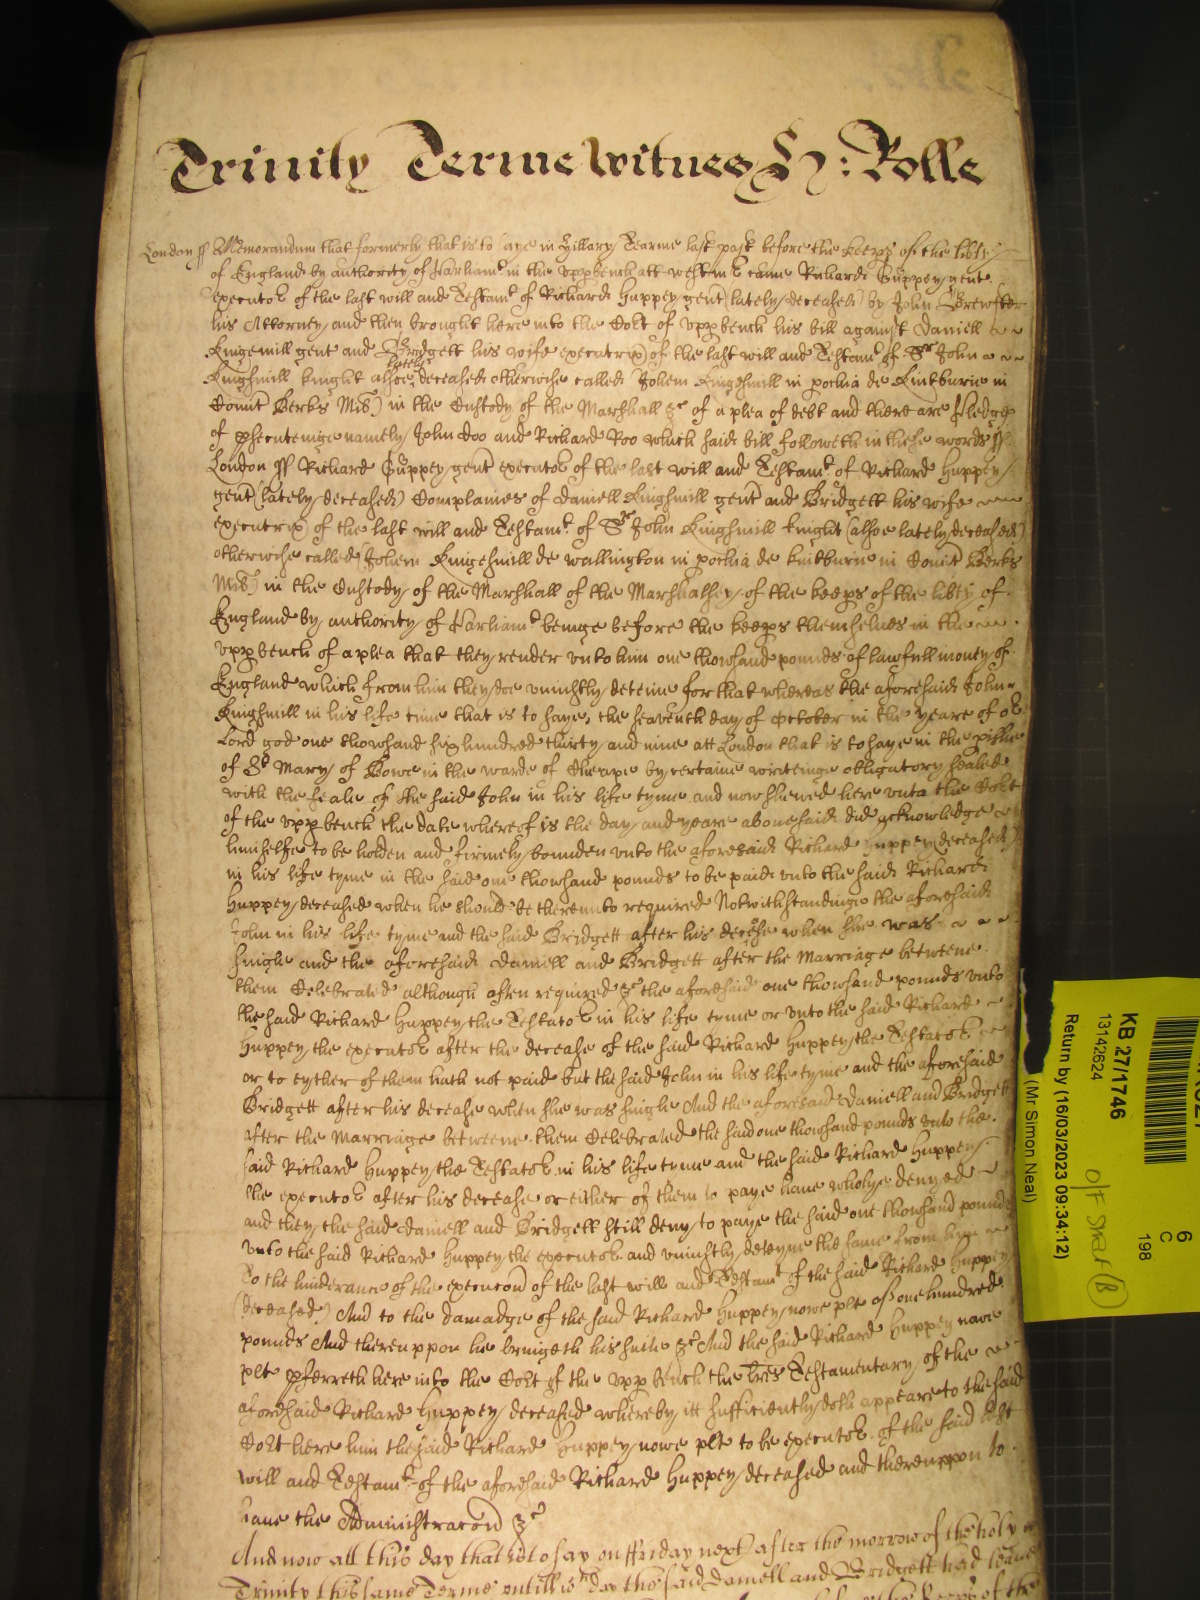 Trinity Terme Witnes H: Rolle
London ss Memorandum that formerly that is to saye in Hillary Tearme last past before the keeps of the libty
of England by authority of Parliamt in the vpp bench att Westm came Richard Guppey gent
executor of the last will and Testamt of Richard Huppey gent (lately deceased) by John Brewster
his Attorney and then brought here into the Cort of vpp bench his bill against Daniell
Kingsmill gent and Bridgett his wife executrix of the last will and Testamt of Sr John
Kingsmill knight alsoe lately deceased otherwise called Johem Kingesmill in pochia de Kintburie in
Comit Berks Mil) in the Custody of the Marshall &c of a plea of debt and there are pledges
of psecuteinge namely John Doo and Richard Roo which said bill followeth in these words ss
London ss Richard Guppey gent executor of the last will and Testamt of Richard Huppey
gent (lately deceased) Complaines of Daniell Kinghmill gent and Bridgett his wife
executrix of the last will and Testamt of Sr John Kinghmill knight (alsoe lately deceased)
otherwise called Johem Kingesmill de Wallington in pochia de kintburie in Comit Berks
Mil) in the Custody of the Marshall of the Marshalsey of the keeps of the libty of
England by authority of Parliamt beinge before the keeps themselues in the
vpp bench of a plea that they render vnto him one thowsand pounds of lawfull money of
England which from him they doe vniustly deteine for that whereas the aforesaid John
Kinghmill in his life time that is to saye the seaventh day of October in the yeare of or
Lord god one thowsand six hundred thirty and nine att London that is to saye in the pishe
of St Mary of Bowe in the warde of Cheape by certaine writeinge obligatory sealed
with the seale of the said John in his life tyme and now shewed here vnto the Cort
of the vpp bench the date whereof is the day and yeare abouesaid did acknowledge
himselfe to be holden and firmely bounden vnto the aforesaid Richard Huppey (deceased)
in his life tyme in the said one thowsand pounds to be paid vnto the said Richard
Huppey deceased when he should be thereunto required Notwithstandinge the aforesaid
John in his life tyme and the said Bridgett after his decese when she was
single and the aforesaid Daniell and Bridgett after the Marriage betweene
them Celebrated although often required &c the aforesaid one thowsand pounds vnto
the said Richard Huppey the Testator in his life tyme or vnto the said Richard
Huppey the executor after the decease of the said Richard Huppey the Testator
or to eyther of them hath not paid but the said John in his life tyme and the aforesaid
Bridgett after his decease when she was single And the aforesaid Daniell and Bridgett
after the Marriage betweene them Celebrated the said one thowsand pounds vnto the
said Richard Huppey the Testator in his life tyme and the said Richard Huppey
the executor after his decease or either of them to paye haue wholye denyed
and they the said Daniell and Bridgett still deny to paye the said one thowsand pounds
vnto the said Richard Huppey the executor and vniustly deteyne the same from hym
To the hinderance of the execucon of the last will and Testamt of the said Richard Huppey
(deceased) And to the damadge of the said Richard Huppey nowe plt of one hundred
pounds And thereuppon he bringeth his suite &c And the said Richard Huppey nowe
plt pferreth here into the Cort of the vpp bench the lres Testamentary of the
aforesaid Richard Huppey deceased whereby itt sufficiently doth appeare to the said
Cort here him the said Richard Huppey nowe plt to be executor of the said last
will and Testamt of the aforesaid Richard Huppey deceased and thereuppon to
haue the Administracon &c
And now att this day that is to say on ffriday next after the morrow of the holy
Trinity this same Terme vntill wch day the said Daniell and Bridgett had leaue
KB 27/1746
13142624
Return by (16/03/2023 09:34:12)
(Mr Simon Neal)
6
C
198